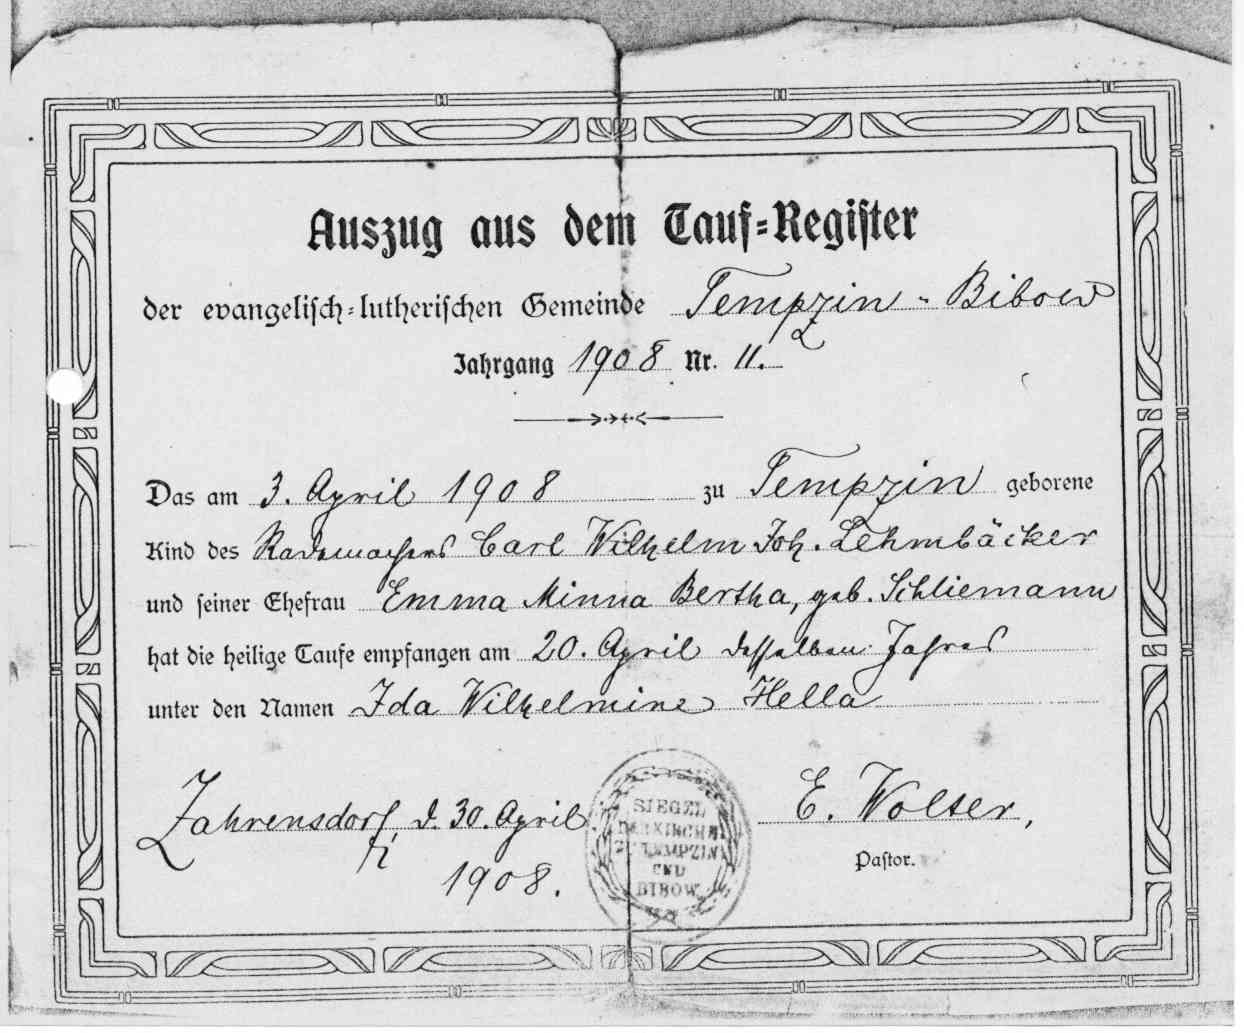 Auszug aus dem Tauf=Register
der evangelisch=lutherischen Gemeinde Tempzin - Bibow
Jahrgang 1908 Nr. 11.
Das am 3. April 1908 zu Tempzin geborene
Kind des Rademachers Carl Wilhelm Joh. Lehmbäcker
und seiner Ehefrau Emma Minna Bertha, geb. Schliemann
hat die heilige Taufe empfangen am 20. April desselben Jahres
unter den Namen Ida Wilhelmine Hella
Zahrensdorf, d. 30. April
1908.
SIEGEL
DER KIRCHE
ZU TEMPZIN
UND
BIBOW
E. Wolter,
Pastor.